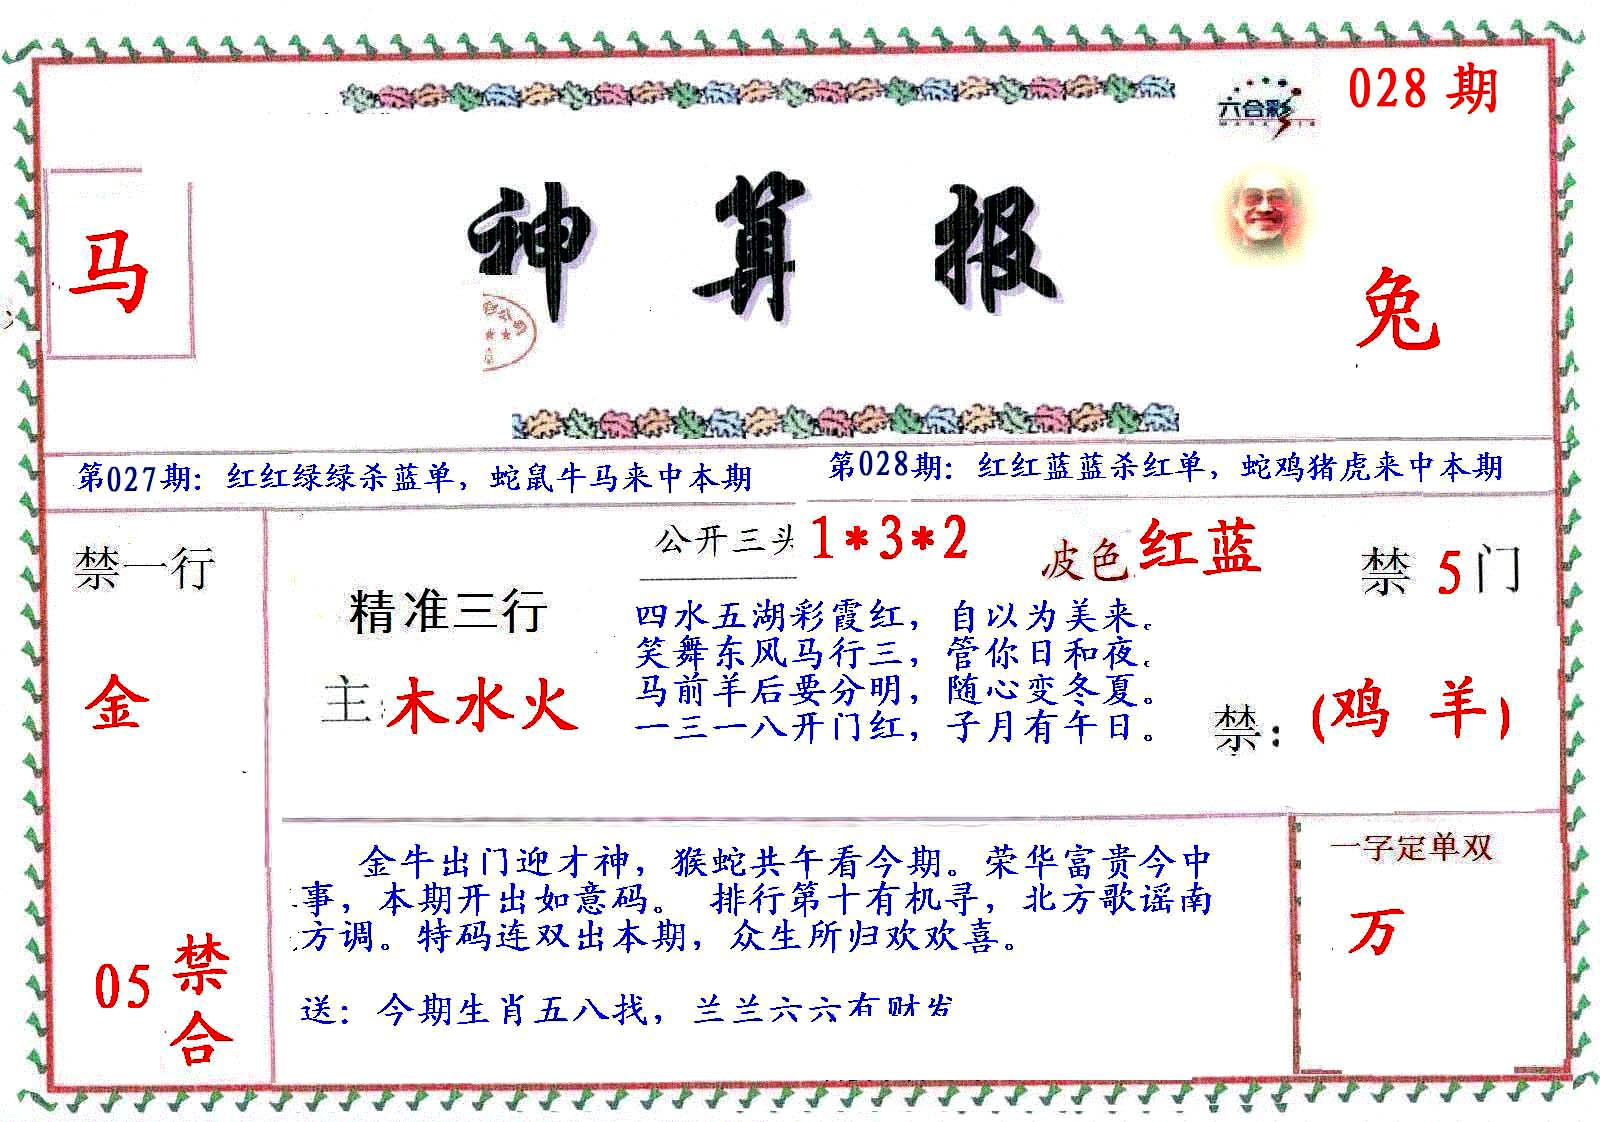 028 期
六合彩
马
神 算 报
兔
第027期：红红绿绿杀蓝单，蛇鼠牛马来中本期
第028期：红红蓝蓝杀红单，蛇鸡猪虎来中本期
禁一行
金
05 禁合
精准三行
主:木水火
公开三头 1*3*2
波色 红蓝
禁 5 门
四水五湖彩霞红，自以为美来。
笑舞东风马行三，管你日和夜。
马前羊后要分明，随心变冬夏。
一三一八开门红，子月有午日。
禁：(鸡 羊)
金牛出门迎才神，猴蛇共午看今期。荣华富贵今中
事，本期开出如意码。 排行第十有机寻，北方歌谣南
方调。特码连双出本期，众生所归欢欢喜。
送：今期生肖五八找，兰兰六六有财发
一字定单双
万